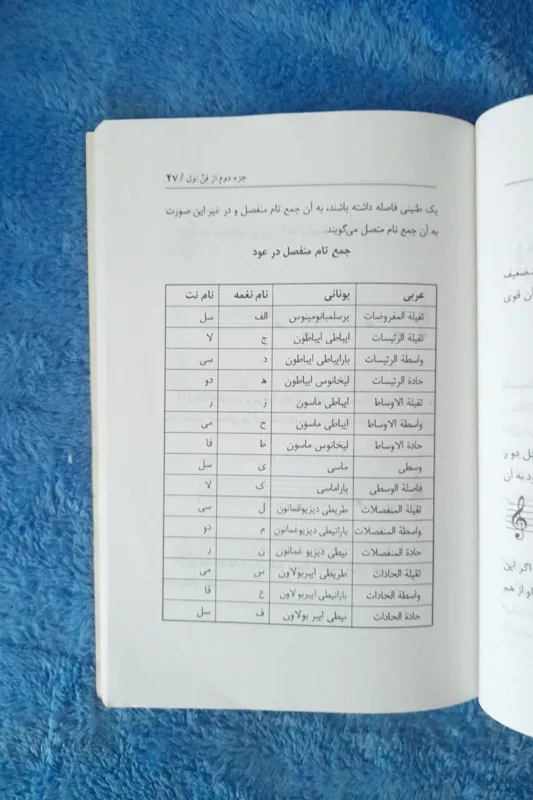 جزء دوم از فنّ اول / ۴۷
یک طنینی فاصله داشته باشند، به آن جمع تام منفصل و در غیر این صورت
به آن جمع تام متصل می‌گویند.
جمع تام منفصل در عود
عربی یونانی نام نغمه نام نت
ثقیلة المفروضات برسلمبانومینوس الف سل
ثقیلة الرئیسات ایباطی ایباطون ج لا
واسطة الرئیسات بارایباطی ایباطون د سی
حادة الرئیسات لیخانوس ایباطون ه دو
ثقیلة الاوساط ایباطی ماسون ز ر
واسطة الاوساط ایباطی ماسون ح می
حادة الاوساط لیخانوس ماسون ط فا
وسطی ماسی ی سل
فاصلة الوسطی باراماسی ک لا
ثقیلة المنفصلات طریطی دیزیوغمانون ل سی
واسطة المنفصلات بارانیطی دیزیوغمانون م دو
حادة المنفصلات نیطی دیزیو غمانون ن ر
ثقیلة الحادات طریطی ایبربولاون س می
واسطة الحادات بارانیطی ایبربولاون ع فا
حادة الحادات نیطی ایبر بولاون ف سل
تضعیف
آن قوی
دو ر
د به آن
اگر این
او از هم